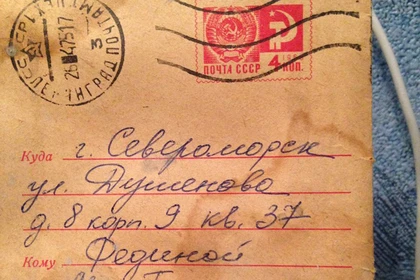 СССР ЛЕНИНГРАД ПОЧТАМТ
3
ПОЧТА СССР
4 КОП.
Куда г. Североморск
ул. Душенова
д. 8 корп. 9 кв. 37
Кому Фединой